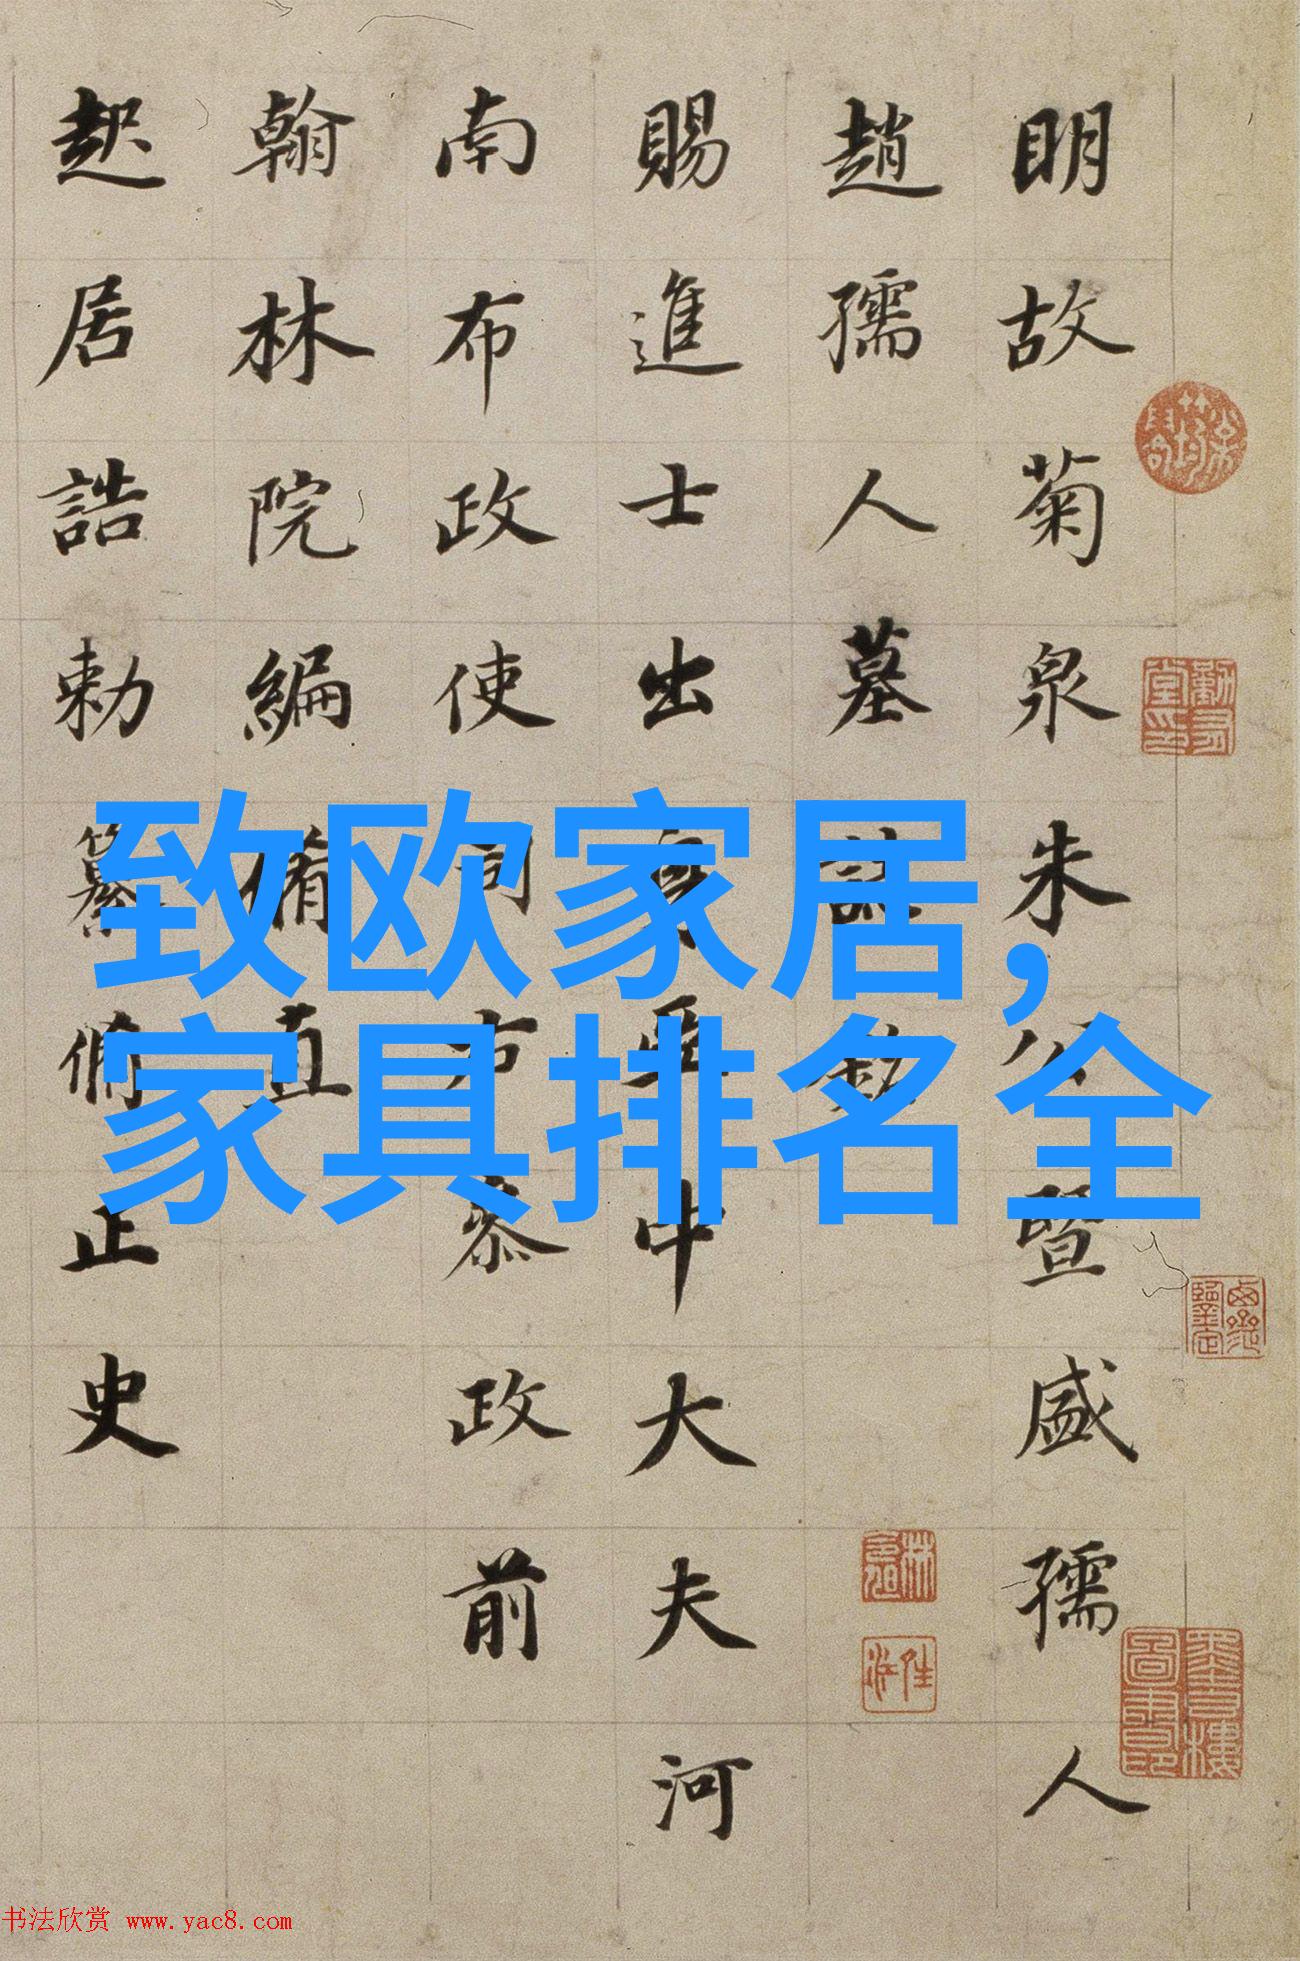 明故菊泉朱公暨盛孺人
趙孺人墓誌銘
賜進士出身亞中大夫河
南布政使司右叅政前
翰林院編脩直
起居誥勅纂脩正史
致欧家居,
家具排名全
书法欣赏 www.yac8.com